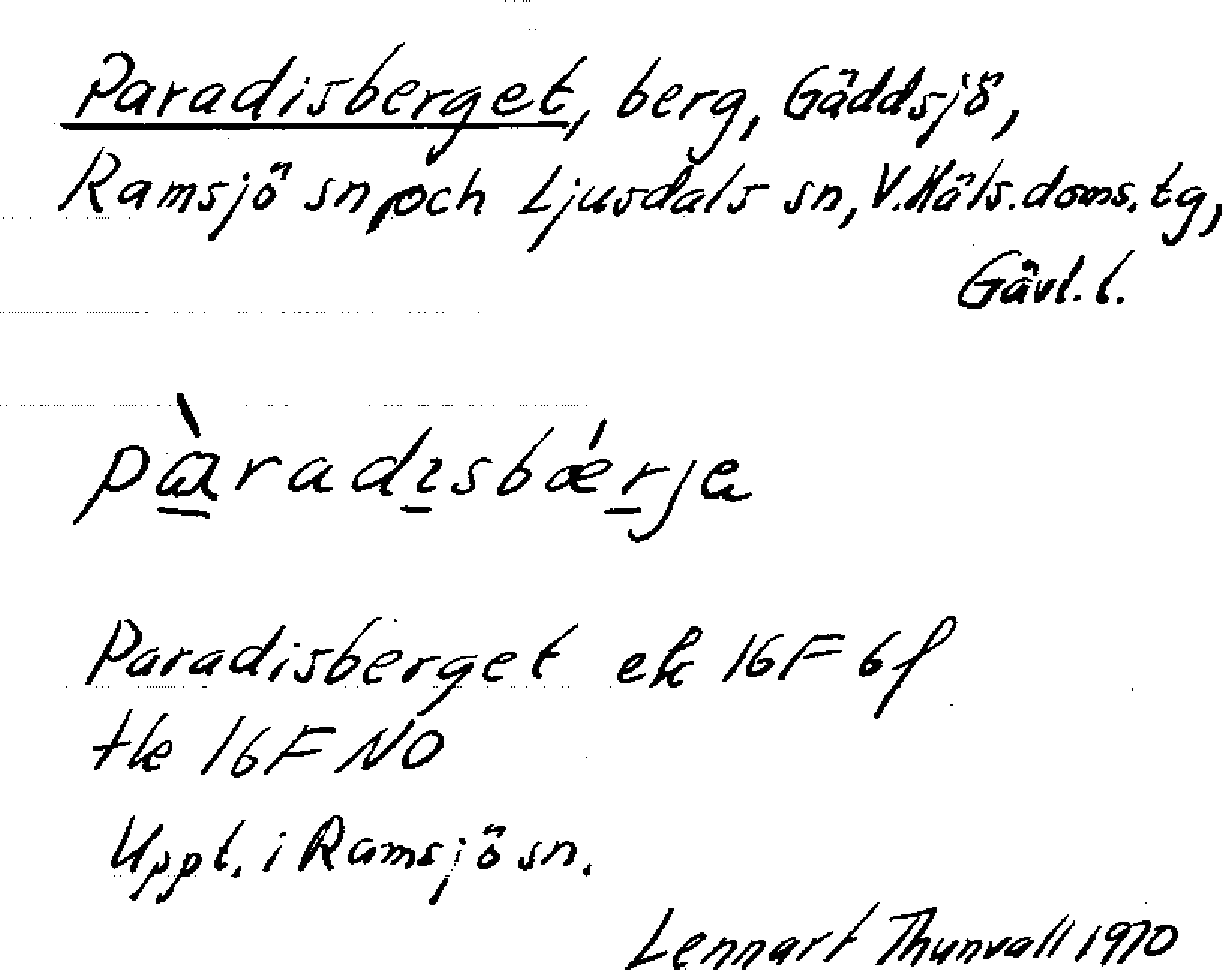 Paradisberget, berg, Gäddsjö,
Ramsjö sn och Ljusdals sn, V.Häls.doms.tg,
Gävl.l.
pàradısbǽrja
Paradisberget ek 16F 6f
tk 16F NO
Uppt. i Ramsjö sn.
Lennart Thunvall 1970